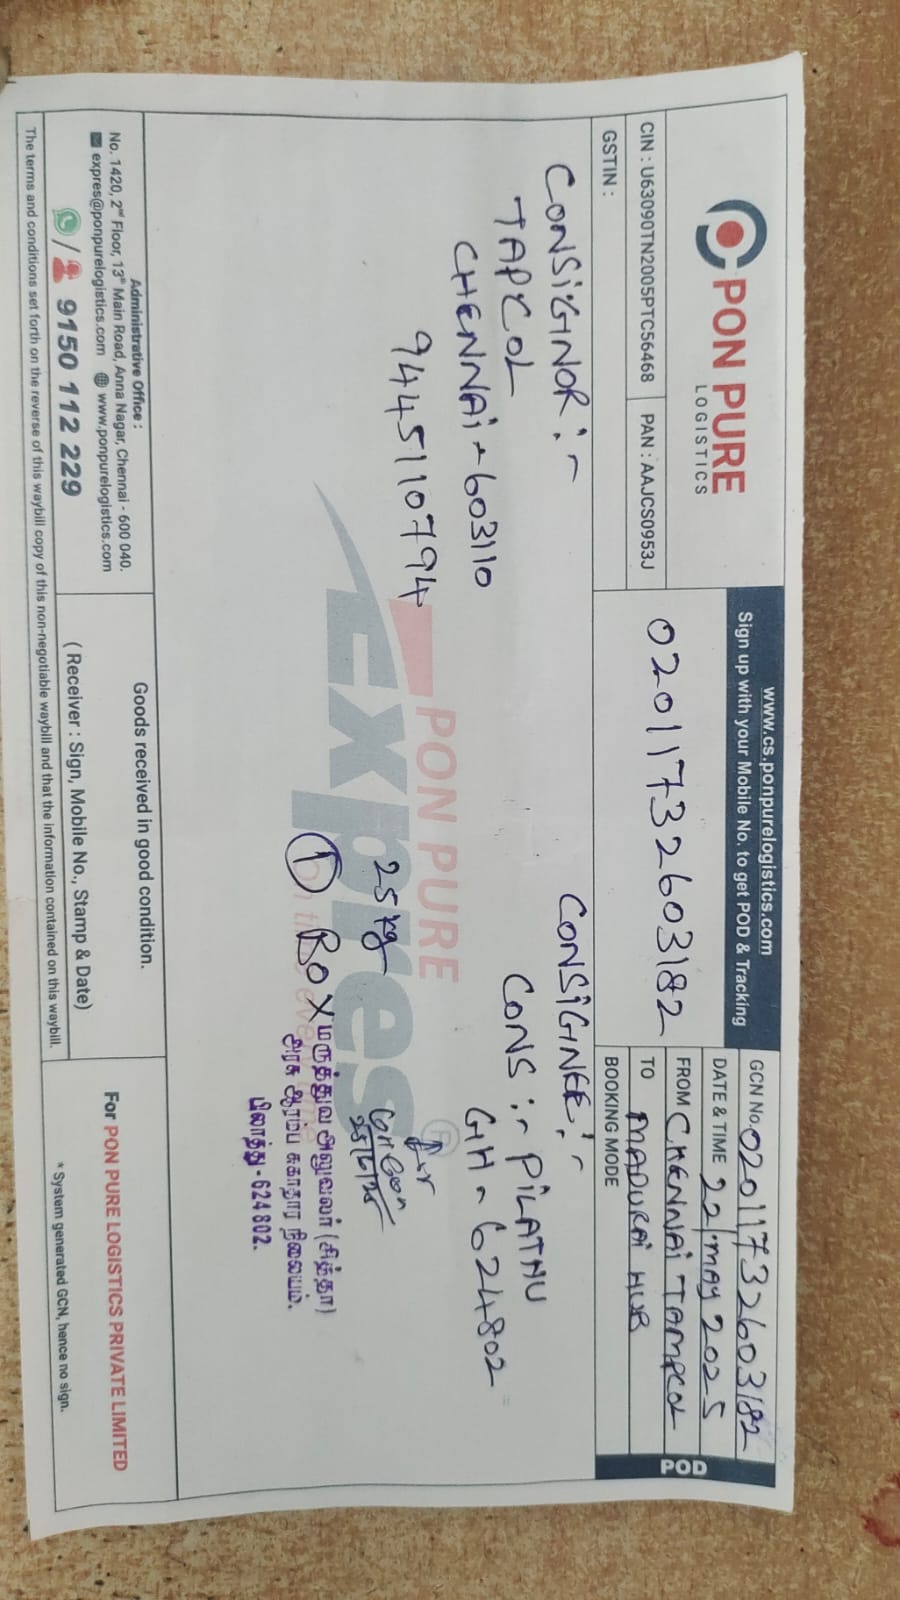 PON PURE
LOGISTICS
CIN : U63090TN2005PTC56468
PAN : AAJCS0953J
GSTIN :
www.cs.ponpurelogistics.com
Sign up with your Mobile No. to get POD & Tracking
02011732603182
GCN No. 02011732603182
DATE & TIME 22/MAY 2025
FROM CHENNAI TAMPCOL
TO MADURAI HUB
BOOKING MODE
POD
CONSIGNOR :-
TAPCOL
CHENNAI - 603110
9445110794
CONSIGNEE :-
CONS :- PILATHU
GH - 624802
PON PURE
Expres®
25 kg
1 BOX
மருத்துவ அலுவலர் (சித்தா)
அரசு ஆரம்ப சுகாதார நிலையம்.
பிலாத்து - 624 802.
Administrative Office :
No. 1420, 2nd Floor, 13th Main Road, Anna Nagar, Chennai - 600 040.
expres@ponpurelogistics.com www.ponpurelogistics.com
/ 9150 112 229
Goods received in good condition.
( Receiver : Sign, Mobile No., Stamp & Date)
For PON PURE LOGISTICS PRIVATE LIMITED
* System generated GCN, hence no sign.
The terms and conditions set forth on the reverse of this waybill copy of this non-negotiable waybill and that the information contained on this waybill.